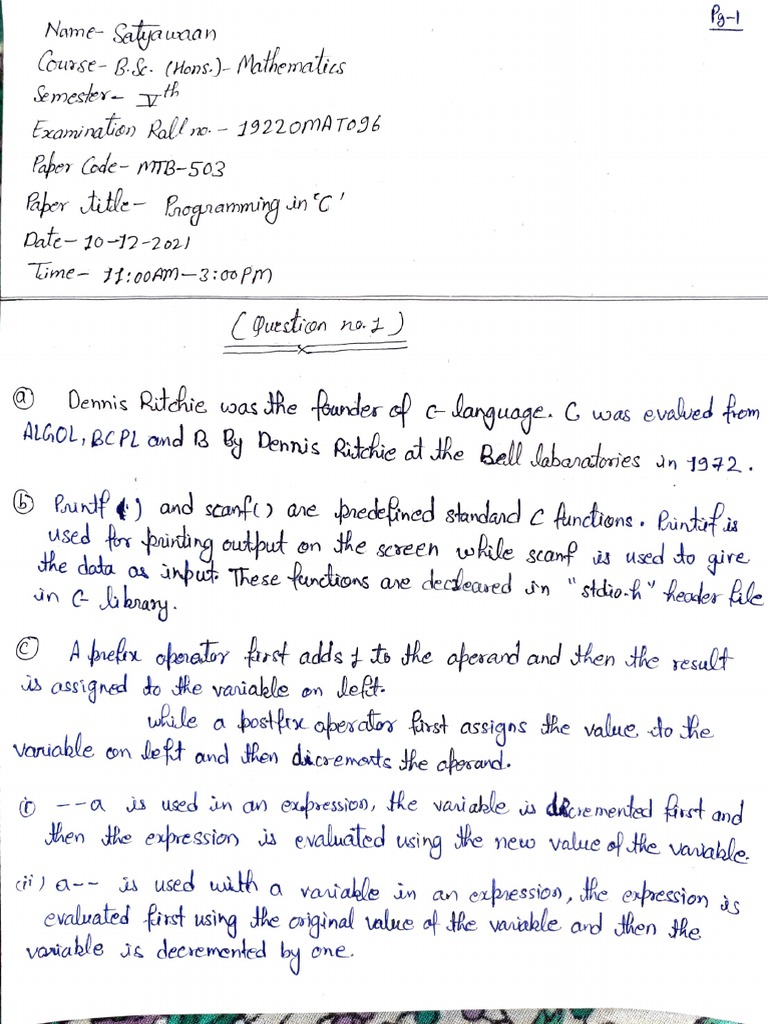 Pg-1
Name- Satyawaan
Course- B.Sc. (Hons.)- Mathematics
Semester- Vth
Examination Rall no. - 19220MAT096
Paper Code- MTB-503
Paper title- Programming in 'C'
Date- 10-12-2021
Time- 11:00AM-3:00PM
(Question no.1)
(a) Dennis Ritchie was the founder of c-language. C was evalued from
ALGOL, BCPL and B By Dennis Ritchie at the Bell labaratories in 1972.
(b) Printf () and scanf() are predefined standard C functions. Printf is
used for printing output on the screen while scanf is used to give
the data as input. These functions are decleared in "stdio.h" header file
in C- library.
(c) A prefix operator first adds 1 to the operand and then the result
is assigned to the variable on left.
while a postfix operator first assigns the value to the
variable on left and then dicrements the operand.
(i) --a is used in an expression, the variable is dicremented first and
then the expression is evaluated using the new value of the variable.
(ii) a-- is used with a variable in an expression, the expression is
evaluated first using the original value of the variable and then the
variable is decremented by one.